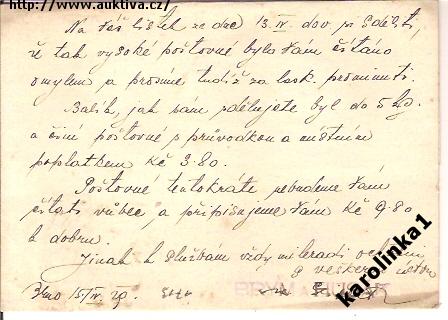 http://www.auktiva.cz/
Na Váš lístek ze dne 13.IV. dov. si sděliti,
že tak vysoké poštovné bylo Vám čítáno
omylem a prosíme tudíž za lask. prominutí.
Balík, jak sám sdělujete byl do 5 kg
a činí poštovné s průvodkou a místním
poplatkem Kč 3.80.
Poštovné tentokráte nebudeme Vám
čítati vůbec a připisujeme Vám Kč 9.80
k dobru.
Jinak k službám vždy milerádi
Brno 15/IV. 29.
karolinka1